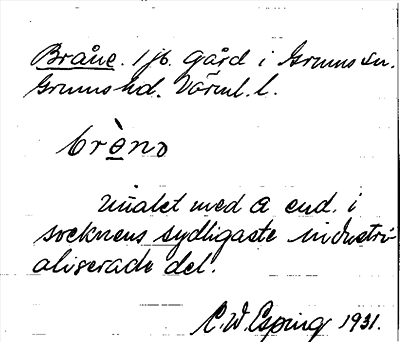 Bråne. 1 jb. Gård i Grums sn.
Grums hd. Värml. l.
brònɔ
Uttalet med a end. i
socknens sydligaste industri-
aliserade del.
C. W. Esping 1931.